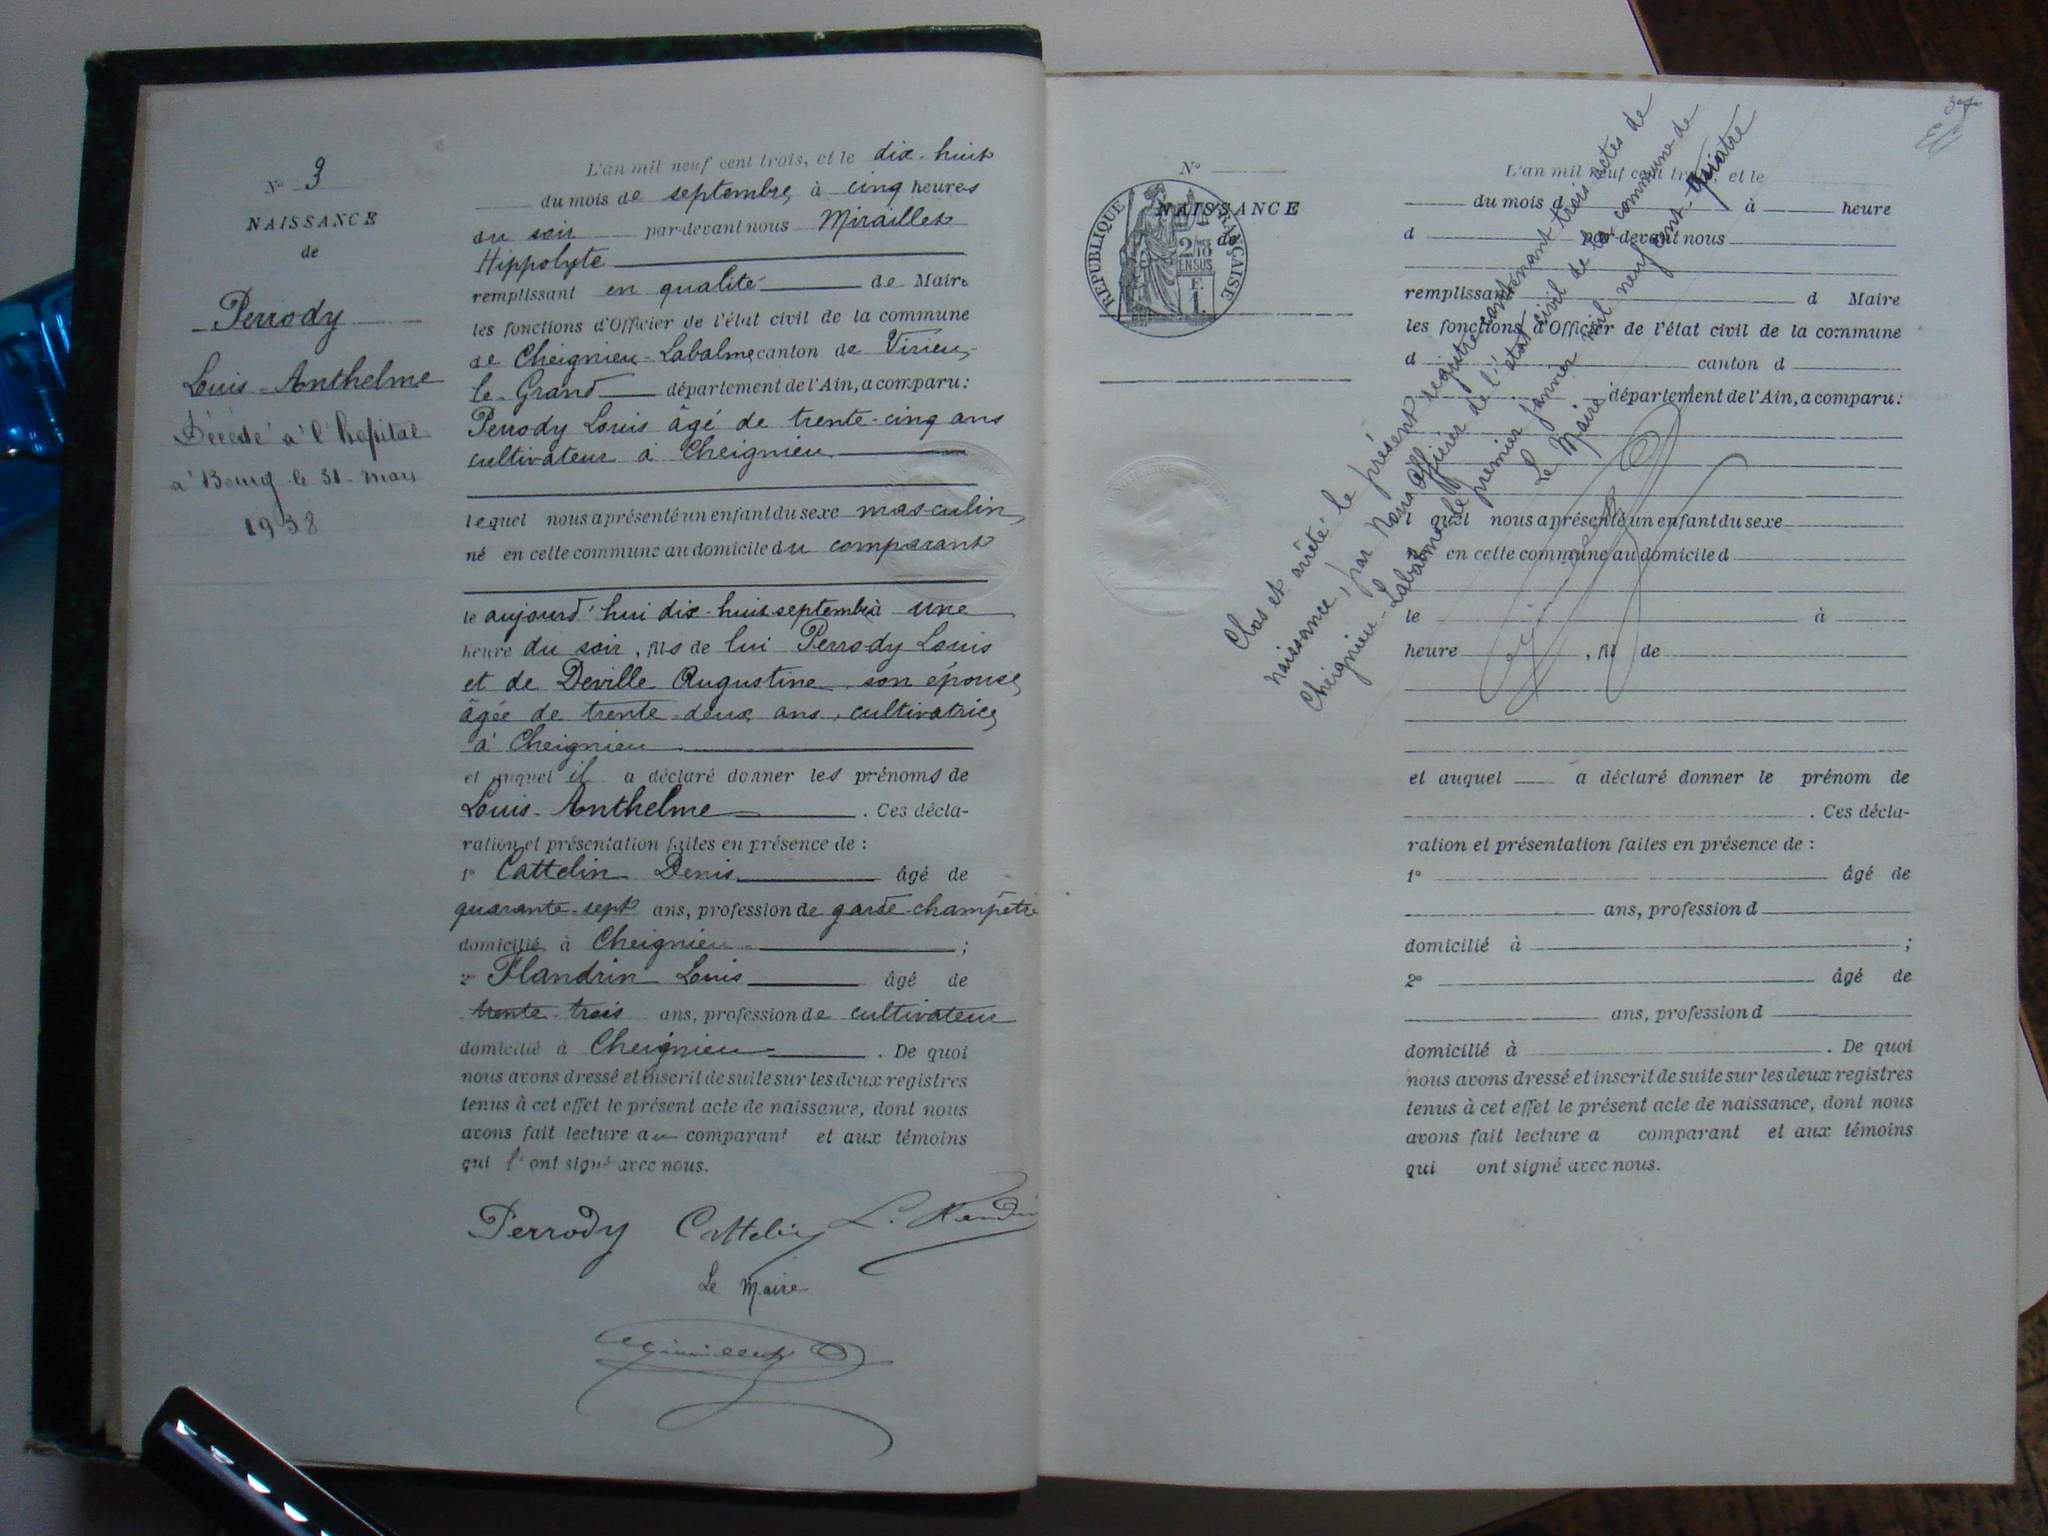 N° 3
NAISSANCE
de
Perrody
Louis-Anthelme
Décédé à l'hopital
à Bourg le 31 mars
1938
L'an mil neuf cent trois, et le dix-huit
du mois de septembre, à cinq heures
du soir par-devant nous Miraillet
Hippolyte
remplissant en qualité de Maire
les fonctions d'Officier de l'état civil de la commune
de Cheignieu-Labalme, canton de Virieu-
le-Grand département de l'Ain, a comparu:
Perrody Louis âgé de trente-cinq ans
cultivateur à Cheignieu
lequel nous a présenté un enfant du sexe masculin,
né en cette commune au domicile du comparant
le aujourd'hui dix-huit septembre à une
heure du soir, fils de lui Perrody Louis
et de Deville Augustine son épouse,
âgée de trente-deux ans, cultivatrice,
à Cheignieu
et auquel il a déclaré donner les prénoms de
Louis-Anthelme. Ces décla-
ration et présentation faites en présence de :
1° Cattelin Denis âgé de
quarante-sept ans, profession de garde-champêtre
domicilié à Cheignieu ;
2° Flandrin Louis âgé de
trente-trois ans, profession de cultivateur
domicilié à Cheignieu. De quoi
nous avons dressé et inscrit de suite sur les deux registres
tenus à cet effet le présent acte de naissance, dont nous
avons fait lecture au comparant et aux témoins
qui l'ont signé avec nous.
Perrody Cattelin
Le Maire
N°
NAISSANCE
de
RÉPUBLIQUE FRANÇAISE
2/10 EN SUS
F. 1
L'an mil neuf cent trois, et le
du mois d à heure
d par-devant nous
remplissant d Maire
les fonctions d'Officier de l'état civil de la commune
d canton d
département de l'Ain, a comparu:
quel nous a présenté un enfant du sexe
en cette commune au domicile d
le à
heure , fil de
et auquel a déclaré donner le prénom de
. Ces décla-
ration et présentation faites en présence de :
1° âgé de
ans, profession d
domicilié à ;
2° âgé de
ans, profession d
domicilié à . De quoi
nous avons dressé et inscrit de suite sur les deux registres
tenus à cet effet le présent acte de naissance, dont nous
avons fait lecture a comparant et aux témoins
qui ont signé avec nous.
Clos et arrêté le présent registre contenant trois actes de
naissance, par Nous officier de l'état civil de la commune de
Cheignieu-Labalme le premier janvier mil neuf cent-quatre
Le Maire